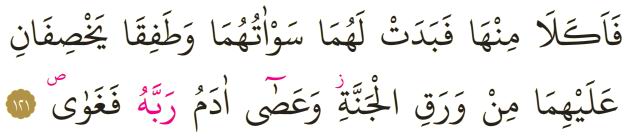 فَاَكَلَا مِنْهَا فَبَدَتْ لَهُمَا سَوْاٰتُهُمَا وَطَفِقَا يَخْصِفَانِ
عَلَيْهِمَا مِنْ وَرَقِ الْجَنَّةِۘ وَعَصٰٓى اٰدَمُ رَبَّهُ فَغَوٰىۖ ١٢١